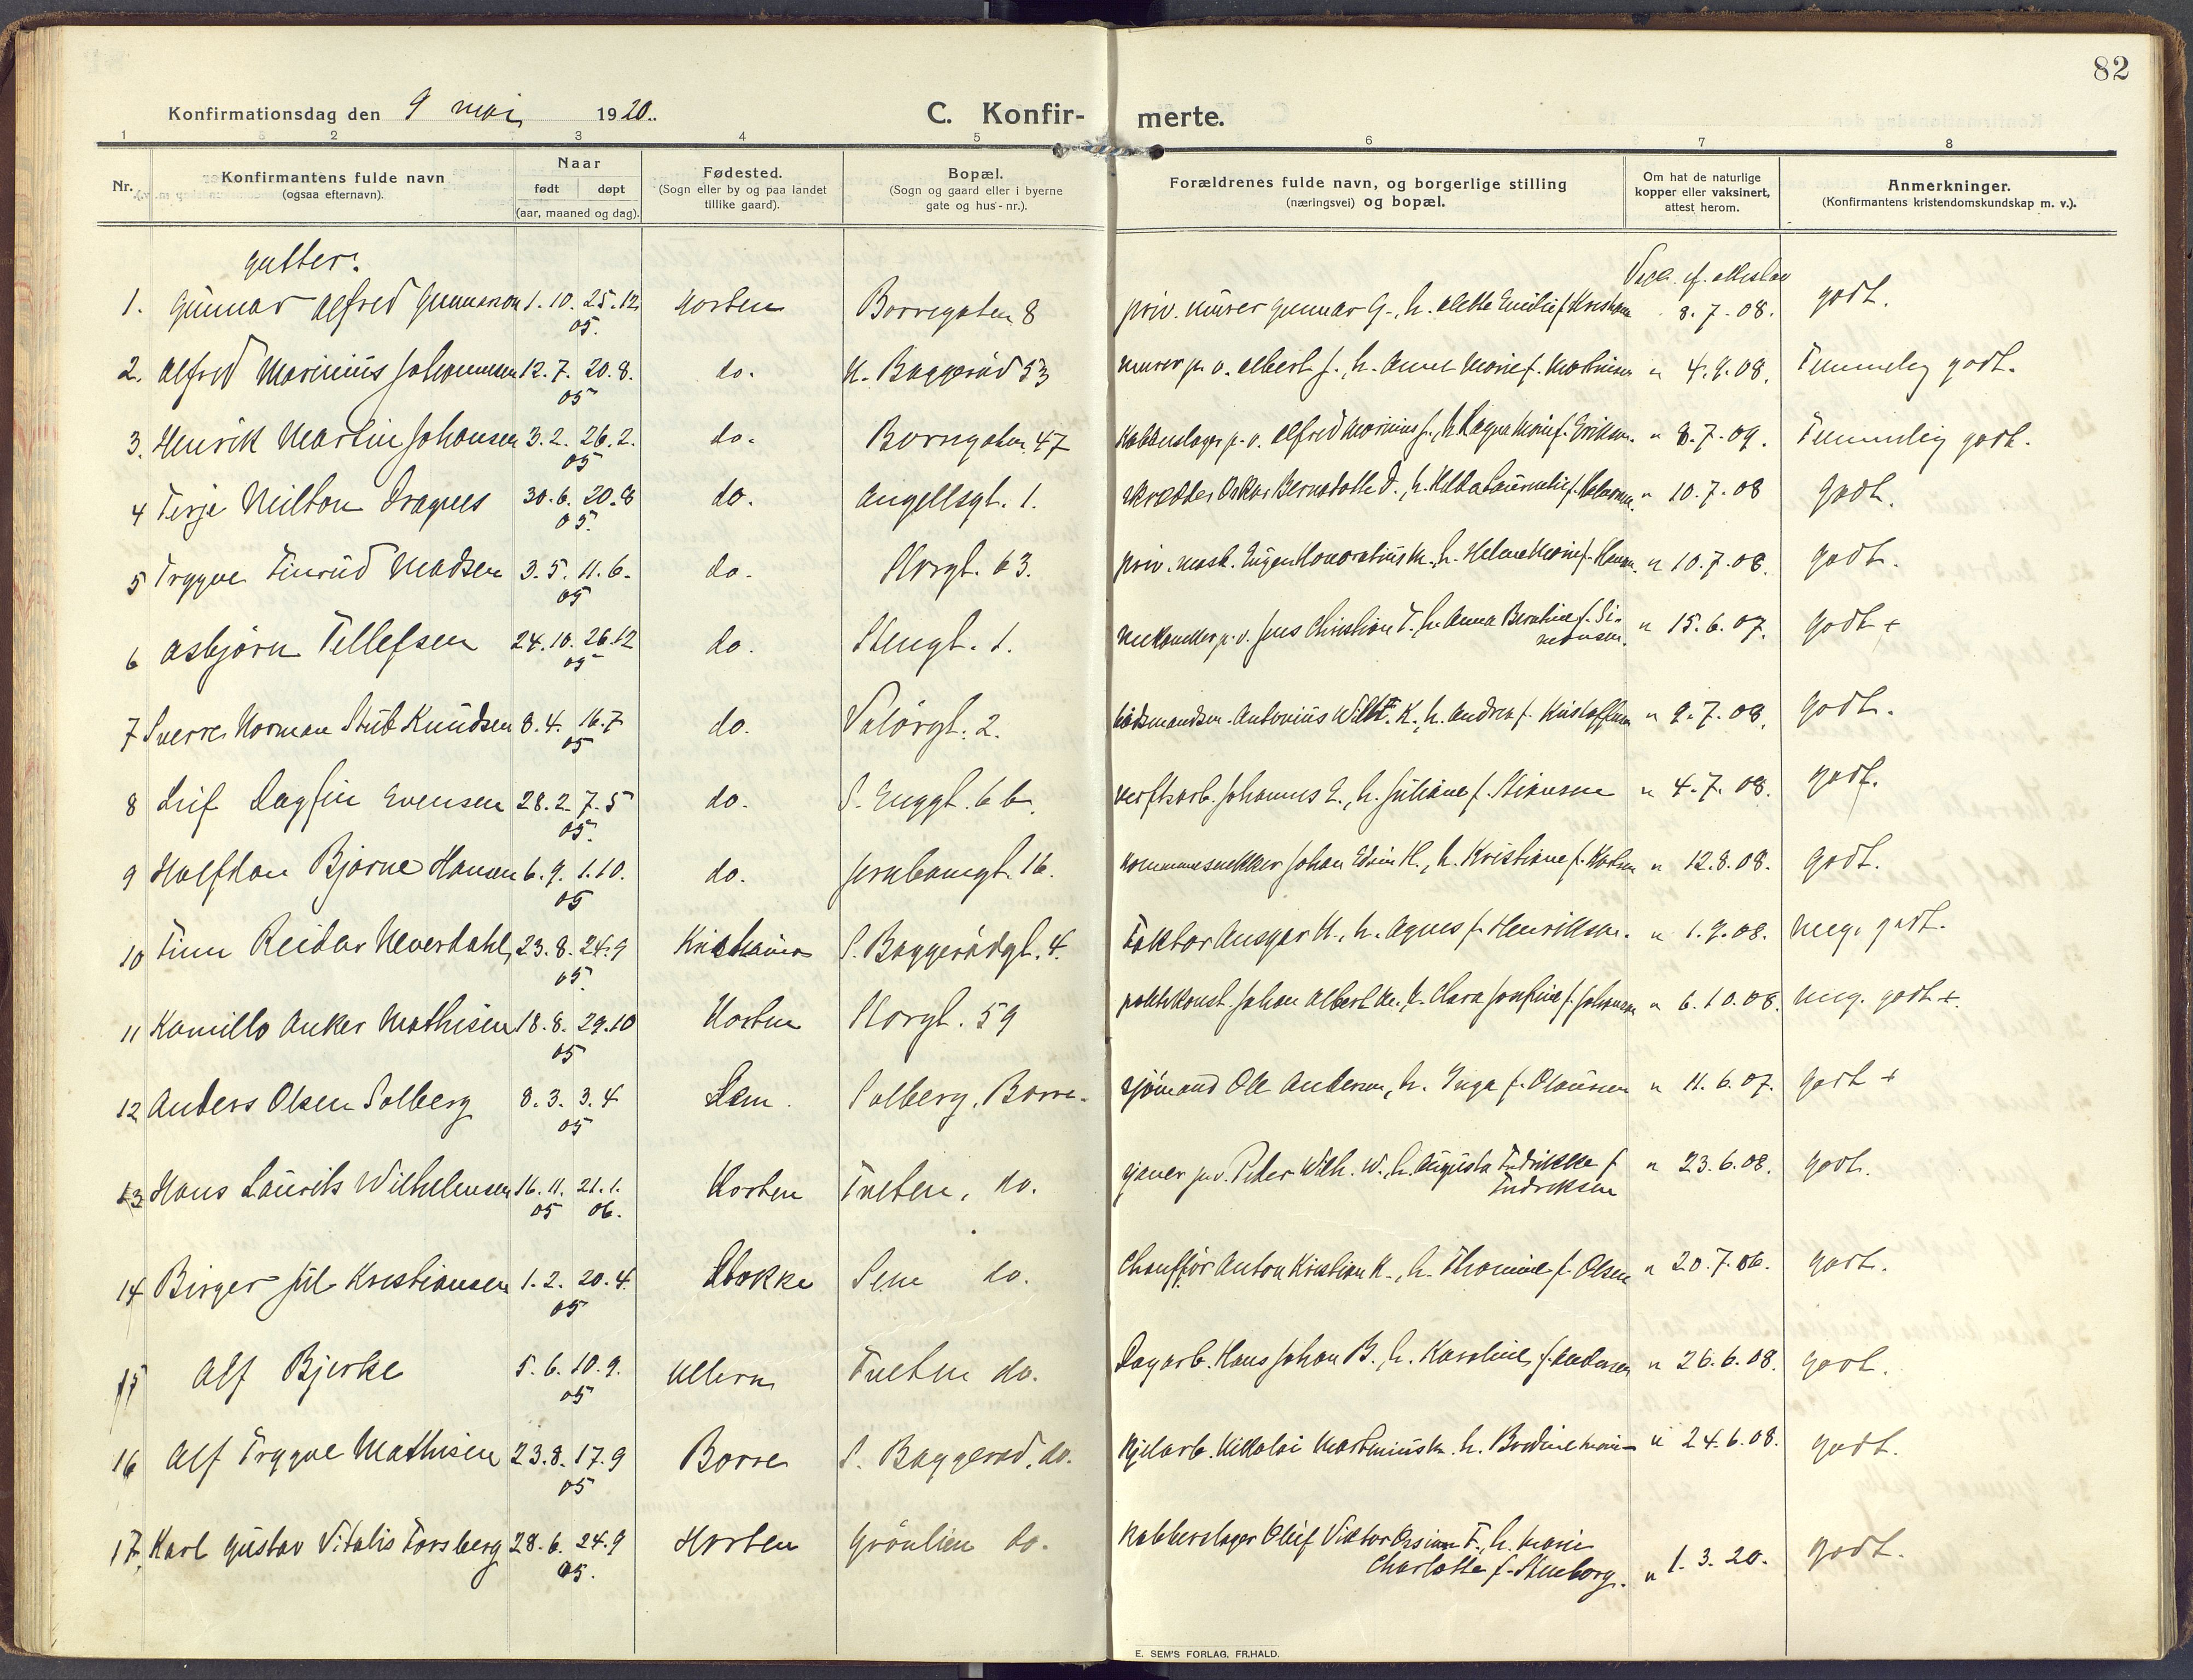 82
Konfirmationsdag den 9 mai 1920.
C. Konfirmerte.
1 2 3 4 5 6 7 8
Nr. Konfirmantens fulde navn (ogsaa efternavn). Naar født døpt (aar, maaned og dag). Fødested. (Sogn eller by og paa landet tillike gaard). Bopæl. (Sogn og gaard eller i byerne gate og hus-nr.). Forældrenes fulde navn, og borgerlige stilling (næringsvei) og bopæl. Om hat de naturlige kopper eller vaksinert, attest herom. Anmerkninger. (Konfirmantens kristendomskundskap m. v.).
gutter.
1. Gunnar Alfred Gunnarson 1.10. 25.12 05. Horten Borregaten 8 priv. murer Gunnar G., h. Alette Emilie f. 8.7.08. godt.
2. Alfred Marinius Johannesen 12.7. 20.8. 05 do. N. Baggerød 53 murer p.v. Albert J., h. Anna Marie f. Martinsen " 4.9.08. Temmelig godt.
3. Henrik Martin Johansen 3.2. 26.2. 05 do. Borregaten 47 Kobberslager p.v. Alfred Marinius J., h. Ragna Marie f. Eriksen. " 8.7.09. Temmelig godt.
4 Terje Milton Dragnes 30.6. 20.8 05. do. Angellsgt. 1. skredder Oskar Bernadotte D., h. Hilda f. " 10.7.08 Godt.
5 Trygve Finrud Madsen 3.5. 11.6. 05 do. Storgt. 63. priv. mask. Eugen Honoratius M., h. Helene Marie f. Hansen. " 10.7.08. godt.
6 Asbjørn Tellefsen 24.10. 26.12 05 do. Stengt. 1. p.v. Jens Christian T., h. Anna Berntine f. Simonsen. " 15.6.07. godt +
7 Sverre Norman Stub Knudsen 8.4. 16.7 05 do. Valørgt. 2. Antonius Wilh. K., h. Andrea f. Kristoffersen " 9.7.08. godt.
8 Leif Dagfin Evensen 28.2. 7.5 05. do. S. Enggt. 6 b. verftsarb. Johannes E., h. Juliane f. Stiansen " 4.7.08. godt.
9 Halfdan Bjarne Hansen 6.9. 1.10. 05 do. Jernbanegt. 16. kommunesnekker Johan Edvin H., h. Kristiane f. Karlsen " 12.8.08. godt.
10 Finn Reidar Neverdahl, 23.8. 24.9 05. Kristiania S. Baggerødgt. 4. Faktor Ansgar N., h. Agnes f. Henriksen. " 1.9.08. Meg. godt.
11 Kamillo Anker Mathisen 18.8. 29.10 05 Horten Storgt. 59 politikonst. Johan Albert M., h. Clara Josefine f. Johansen " 6.10.08. Meg. godt +.
12 Anders Olsen Solberg 8.3. 3.4 05 Sem. Solberg, Borre. sjømand Ole Andersen, h. Inga f. Olausen " 11.6.07. godt +
13 Hans Laurits Wilhelmsen 16.11. 05 21.1. 06. Horten Tveten, do. p.v. Peder Wilh. W., h. Augusta Fredrikke f. Fredriksen " 23.6.08. godt.
14 Birger Jul Kristiansen 1.2. 20.4. 05 Stokke Sem do. Chauffør Anton Kristian K., h. Thomine f. Olsen " 20.7.06. godt.
15 Alf Bjerke 5.6. 10.9. 05 Ullern Tveten do. Dagarb. Hans Johan B., h. Karoline f. Andersen " 26.6.08. godt.
16 Alf Trygve Mathisen 23.8. 17.9 05 Borre S. Baggerød, do. Nikolai Martinius M. h. Bredine Marie " 24.6.08. godt.
17. Karl Gustav Vitalis Forsberg 28.6. 24.9 05. Horten Grønlien do. Kobberslager Oluf Viktor F., h. Marie Charlotte f. Stenborg. " 1.3.20. godt.
E. SEM'S FORLAG, FR.HALD.